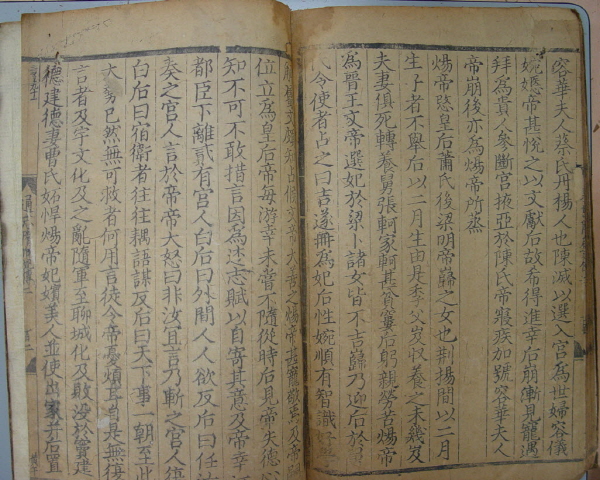 容華夫人蔡氏丹楊人也陳滅以選入宮為世婦容儀
婉嫕帝甚悅之以文獻后故希得進幸后崩漸見寵遇
拜為貴人參斷宮掖亞於陳氏帝寢疾加號容華夫人
帝崩後亦為煬帝所蒸
煬帝愍皇后蕭氏後梁明帝巋之女也荆揚間以二月
生子者不舉后以二月生由是季父岌収養之未幾岌
夫妻俱死轉養舅張軻家軻甚貧窶后躬親勞苦煬帝
為晉王文帝選妃於梁卜諸女皆不吉巋乃迎后於
氏令使者占之曰吉遂冊為妃后性婉順有智識好學
位立為皇后帝每游幸未嘗不隨從時后見帝失德心
知不可不敢措言因為述志賦以自寄其意及帝幸江
都臣下離貳有宮人白后曰外閒人人欲反后曰任汝
奏之宮人言於帝帝大怒曰非汝宜言乃斬之宮人復
白后曰宿衛者往往耦語謀反后曰天下事一朝至此
大勢已然無可救者何用言徒令帝憂煩耳自是無復
言者及宇文化及之亂隨軍至聊城化及敗沒於竇建
德建德妻曹氏妬悍煬帝妃嬪美人並使出家并后置